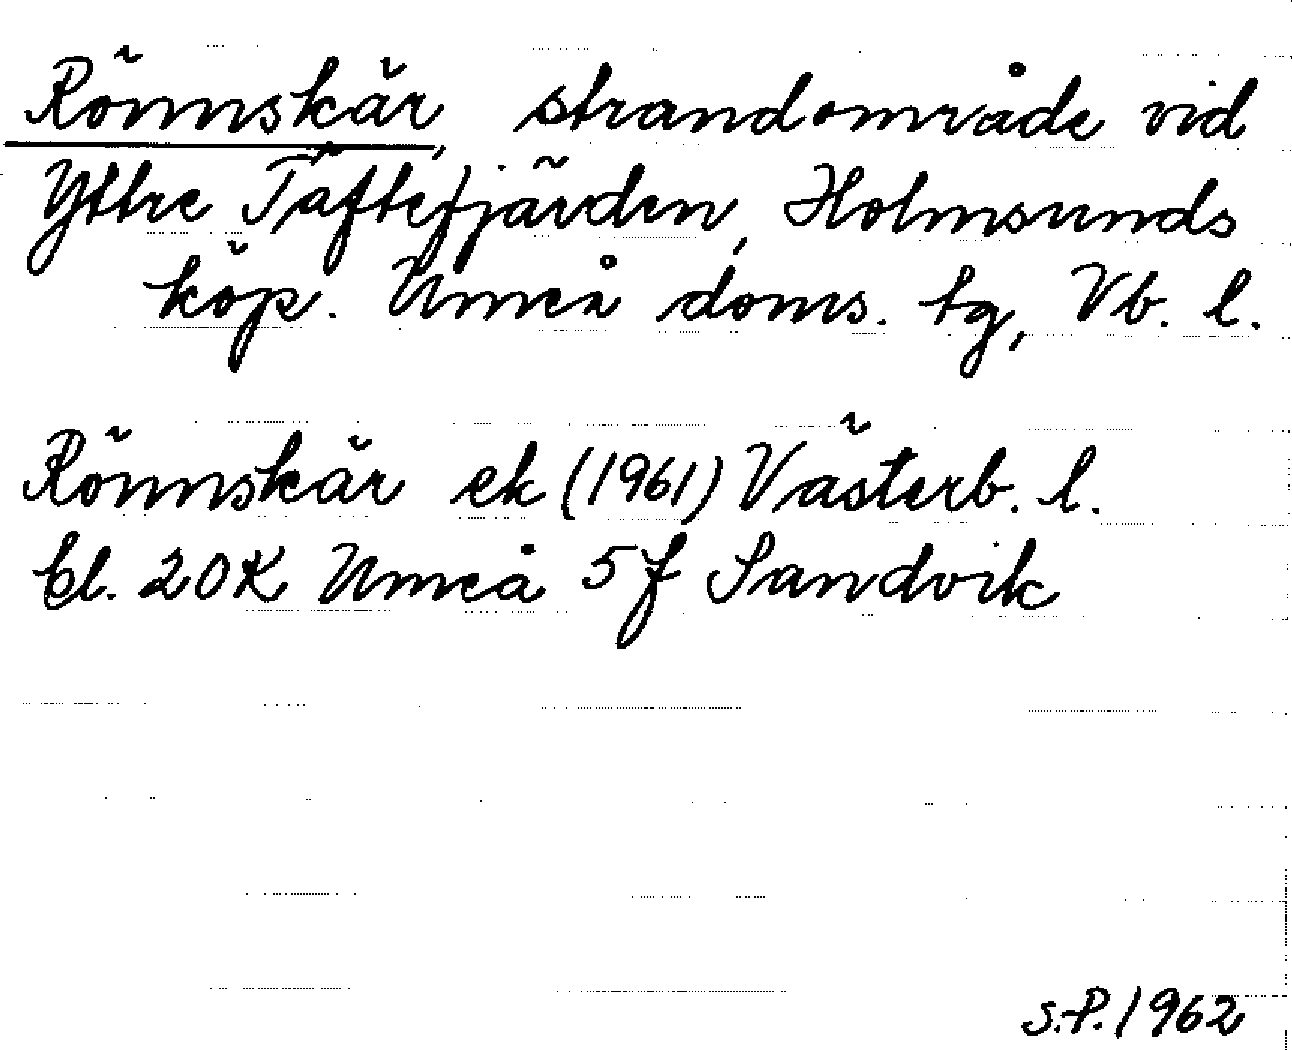 Rönnskär, strandområde vid
Yttre Täftefjärden, Holmsunds
köp. Umeå doms. tg, Vb. l.
Rönnskär ek (1961) Västerb. l.
bl. 20K Umeå 5f Sandvik
S.P. 1962